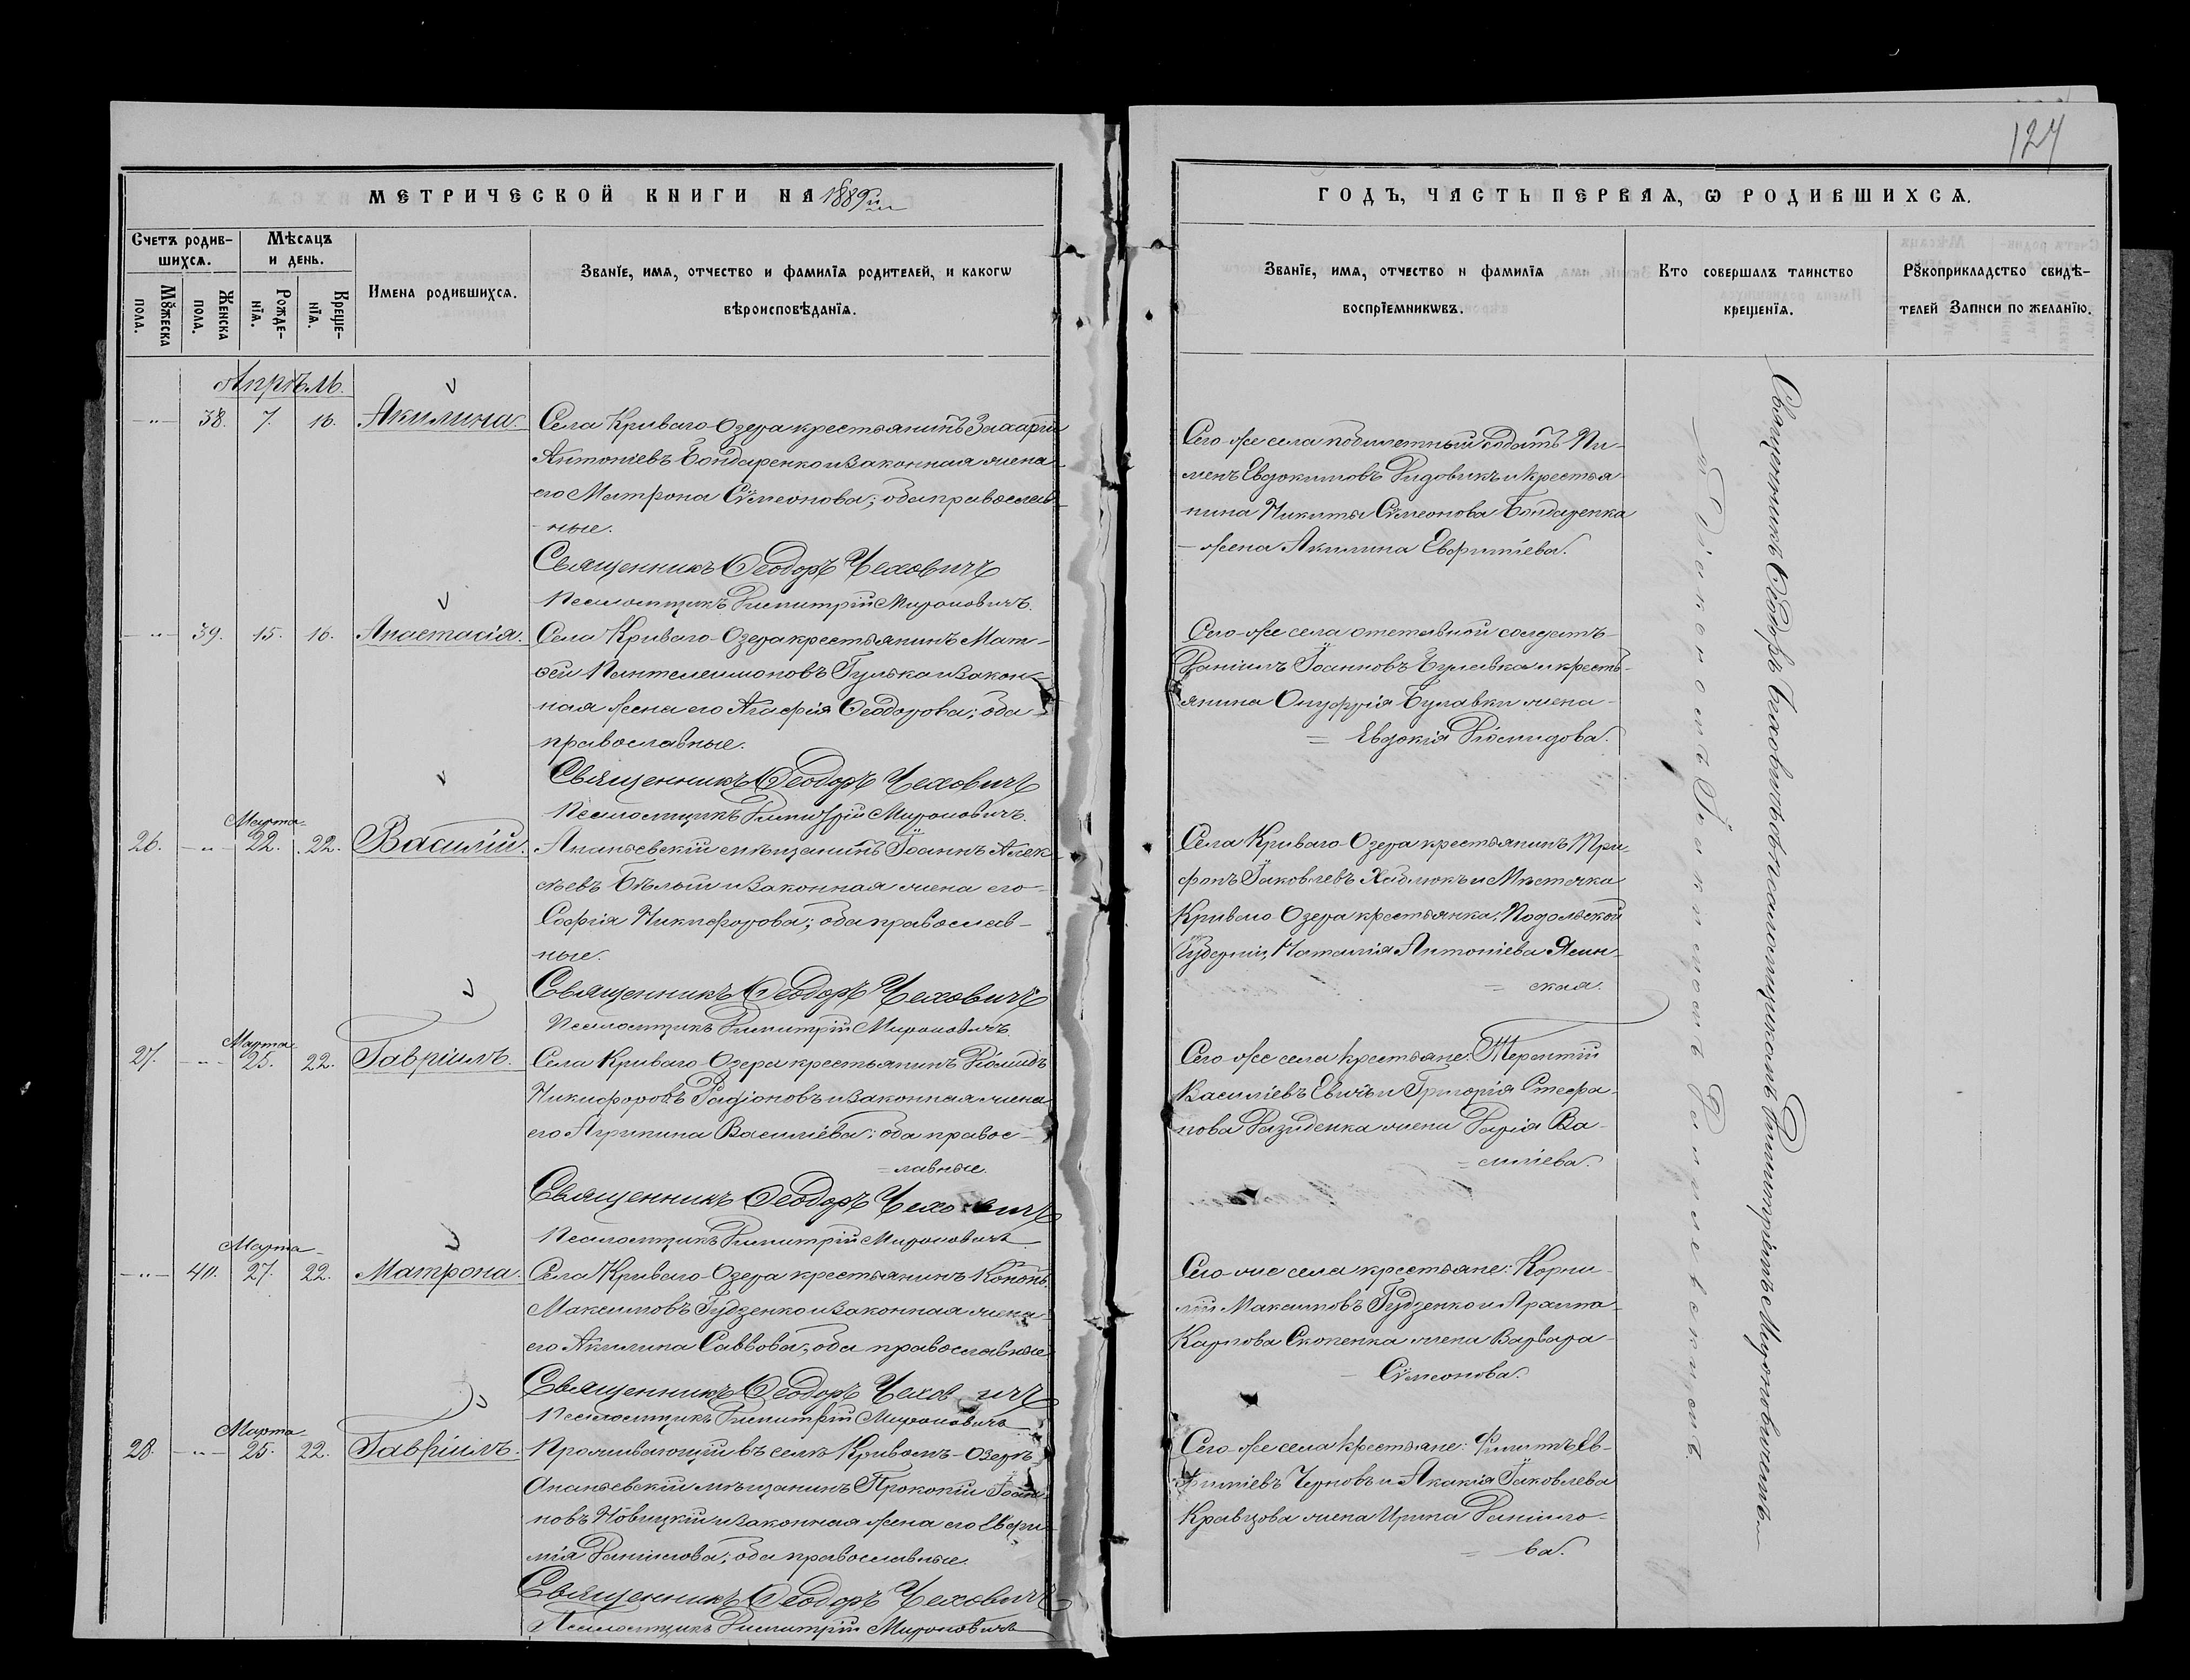 127
МЕТРИЧЕСКОЙ КНИГИ НА 1889й
ГОДЪ, ЧАСТЬ ПЕРВАЯ, Ѡ РОДИВШИХСѦ.
Счетъ родив-
шихсѧ.
Мꙋжеска
пола.
Женска
пола.
Мѣсѧцъ
и день.
Рожде-
нїѧ.
Креще-
нїѧ.
Имена родившихсѧ.
Званїе, имѧ, отчество и фамилїѧ родителей, и какогѡ
вѣроисповѣданїѧ.
Званїе, имѧ, отчество и фамилїѧ
воспрїемникѡвъ.
Кто совершалъ таинство
крещенїѧ.
Рꙋкоприкладство свидѣ-
телей записи по желанїю.
Апрѣль.
-"- 38. 7. 16. Акилина.
Села Криваго-Озера крестьянинъ Захарій
Антоніевъ Бондаренко и законная жена
его Матрона Сѵмеонова; оба православ-
ные.
Священникъ Ѳеодоръ Чеховичъ
Псаломщикъ Димитрій Мироновичъ.
Сего-же села побилетный солдатъ Пи-
менъ Евдокимовъ Дидовикъ и крестья-
нина Никиты Сѵмеонова Бондаренка
жена Акилина Евфиміева.
-"- 39. 15. 16. Анастасія.
Села Криваго-Озера крестьянинъ Мат-
ѳей Пантелеимоновъ Гулька и закон-
ная жена его Агафія Ѳеодорова; оба
православные.
Священникъ Ѳеодоръ Чеховичъ
Псаломщикъ Димитрій Мироновичъ.
Сего-же села отставной солдатъ
Даніилъ Іоанновъ Булавка и кресть-
янина Онуфрія Булавки жена
= Евдокія Діомидова.
26. -"- Марта 22. 22. Василій.
Ананьевскій мѣщанинъ Іоаннъ Алек-
сѣевъ Бѣлый и законная жена его
Софія Никифорова; оба православ-
ные.
Священникъ Ѳеодоръ Чеховичъ
Псаломщикъ Димитрій Мироновичъ.
Села Криваго-Озера крестьянинъ Три-
фонъ Іаковлевъ Хаблюкъ и Мѣстечка
Криваго Озера крестьянка, Подольской
Губерніи, Наталія Антоніева Ясин-
= ская.
27. -"- Марта 25. 22. Гавріилъ.
Села Криваго-Озера крестьянинъ Діомидъ
Никифоровъ Радіоновъ и законная жена
его Агрипина Василіева; оба правос-
= лавные.
Священникъ Ѳеодоръ Чеховичъ
Псаломщикъ Димитрій Мироновичъ
Сего-же села крестьяне: Терентій
Василіевъ и Григорія Стефа-
нова жена Дарія Ва-
= силіева.
-"- 40. Марта 27. 22. Матрона.
Села Криваго-Озера крестьянинъ Кононъ
Максимовъ Гудзенко и законная жена
его Акилина Саввова; оба православные
Священникъ Ѳеодоръ Чеховичъ
Псаломщикъ Димитрій Мироновичъ
Сего-же села крестьяне: Корни-
лій Максимовъ Гудзенко и
Карпова Скопенка жена Варвара
Сѵмеонова.
28. -"- Марта 25. 22. Гавріилъ.
Проживающій въ селѣ Кривомъ-Озерѣ
Ананьевскій мѣщанинъ Прокопій Іоан-
новъ Новицкій и законная жена его Евфи-
мія Даніилова; оба православные.
Священникъ Ѳеодоръ Чеховичъ
Псаломщикъ Димитрій Мироновичъ
Сего-же села крестьяне: Филиппъ Ев-
фиміевъ Черновъ и Акакія Іаковлева
Кравцова жена Ирина Даніило-
= ва.
Священникъ Ѳеодоръ Чеховичъ съ псаломщикомъ Димитріемъ Мироновичемъ